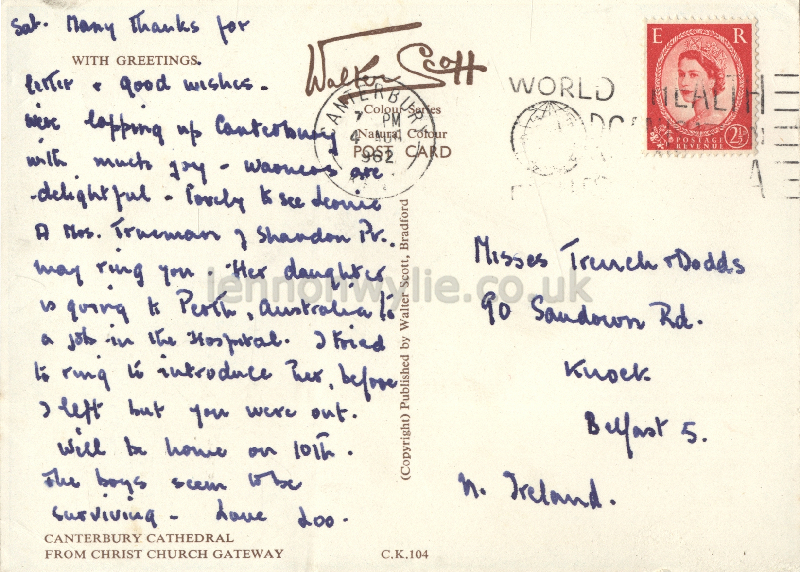 Sat. Many thanks for
WITH GREETINGS.
letter & good wishes -
We're lapping up Canterbury
with much joy - Warners are
delightful - lovely to see
A Mrs. Trueman of Shandon Pk.
may ring you. Her daughter
is going to Perth, Australia to
a job in the Hospital. I tried
to ring to introduce her, before
I left but you were out.
Will be home on 10th.
The boys seem to be
surviving - Love Loo.
CANTERBURY CATHEDRAL
FROM CHRIST CHURCH GATEWAY
C.K.104
Walter Scott
Colour Series
Natural Colour
POST CARD
CANTERBURY
7 PM
4
962
(Copyright) Published by Walter Scott, Bradford
WORLD HEALTH
E R
2½D
POSTAGE
REVENUE
Misses Trench & Dodds
90 Sandown Rd.
Knock
Belfast 5.
N. Ireland.
lennonwylie.co.uk